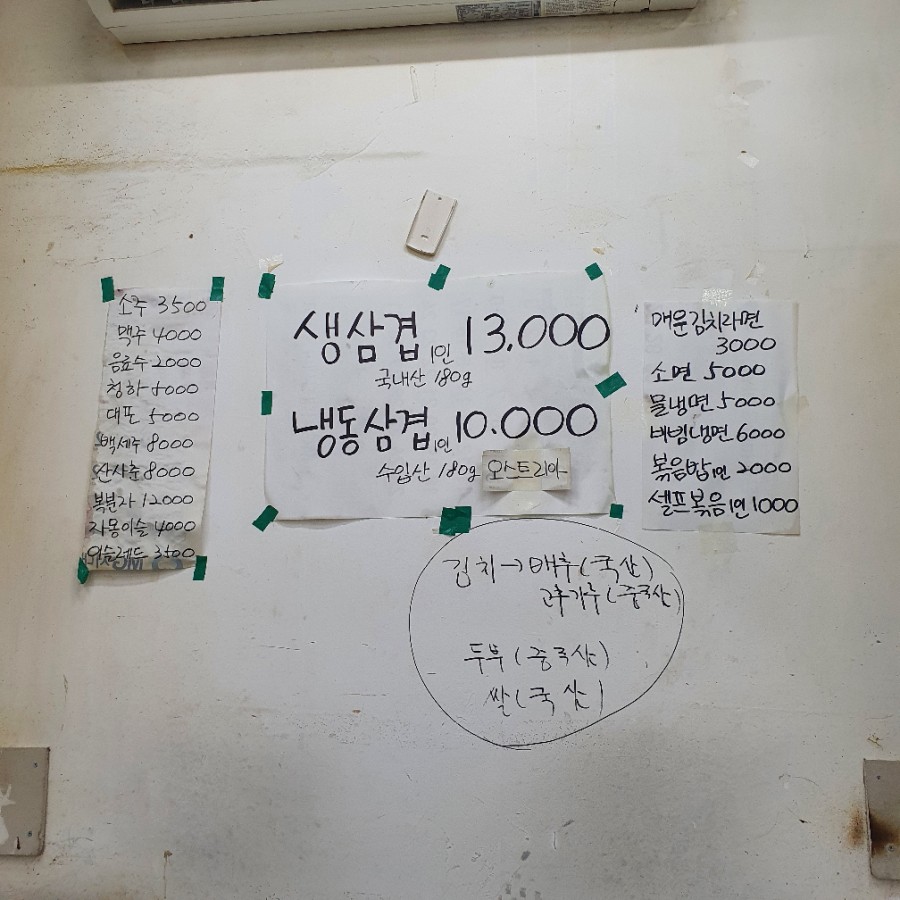 소주 3500
맥주 4000
음료수 2000
청하 5000
대포 5000
백세주 8000
산사춘 8000
복분자 12000
자몽이슬 4000
이슬레드 3500
생삼겹 1인 13.000
국내산 180g
냉동삼겹 1인 10.000
수입산 180g 오스트리아
매운김치라면
3000
소면 5000
물냉면 5000
비빔냉면 6000
볶음밥 1인 2000
셀프볶음 1인 1000
김치→배추(국산)
고추가루(중국산)
두부(중국산)
쌀(국산)